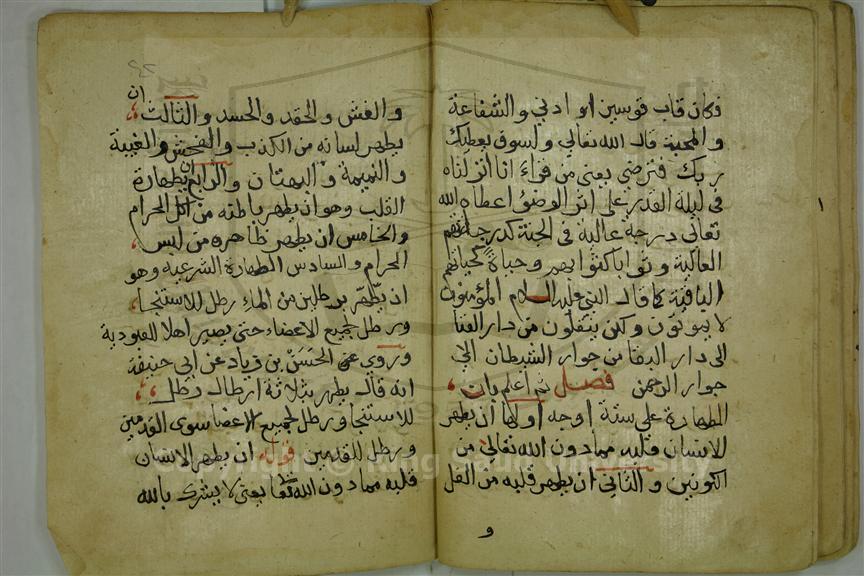 فكان قاب قوسين او ادنى والشفاعة
والمحبة قال الله تعالى ولسوف يعطيك
ربك فترضى يعنى من قراء انا انزلناه
فى ليلة القدر على اثر الوضؤ اعطاه الله
تعالى درجة عالية فى الجنة كدرجاتهم
العالية وثوابا كثوابهم وحياة كحياتهم
الباقية كما قال النبى عليه السلام المؤمنون
لا يموتون ولكن ينتقلون من دار الفنا
الى دار البقا من جوار الشيطان الى
جوار الرحمن فصل ثم اعلم بان
الطهارة على ستة اوجه اولها ان يطهر
للانسان قلبه مما دون الله تعالى من
الكونين والثانى ان يطهر قلبه من الغل
و
والغش والحقد والحسد والثالث ان
يطهر لسانه من الكذب والفحش والغيبة
والنميمة والبهتان والرابع بطهارة
القلب وهو ان يطهر باطنه من اكل الحرام
والخامس ان يطهر ظاهره من لبس
الحرام والسادس الطهارة الشرعية وهو
ان يطهر برطلين من الماء رطل للاستنجا
ورطل لجميع الاعضاء حتى يصير اهلا للعبودية
وروى عن الحسن بن زياد عن ابى حنيفة
انه قال يطهر بثلاثة ارطال رطل
للاستنجا ورطل لجميع الاعضا سوى القدمين
ورطل للقدمين قوله ان يطهر الانسان
قلبه مما دون الله تعا يعنى لا يشرك بالله